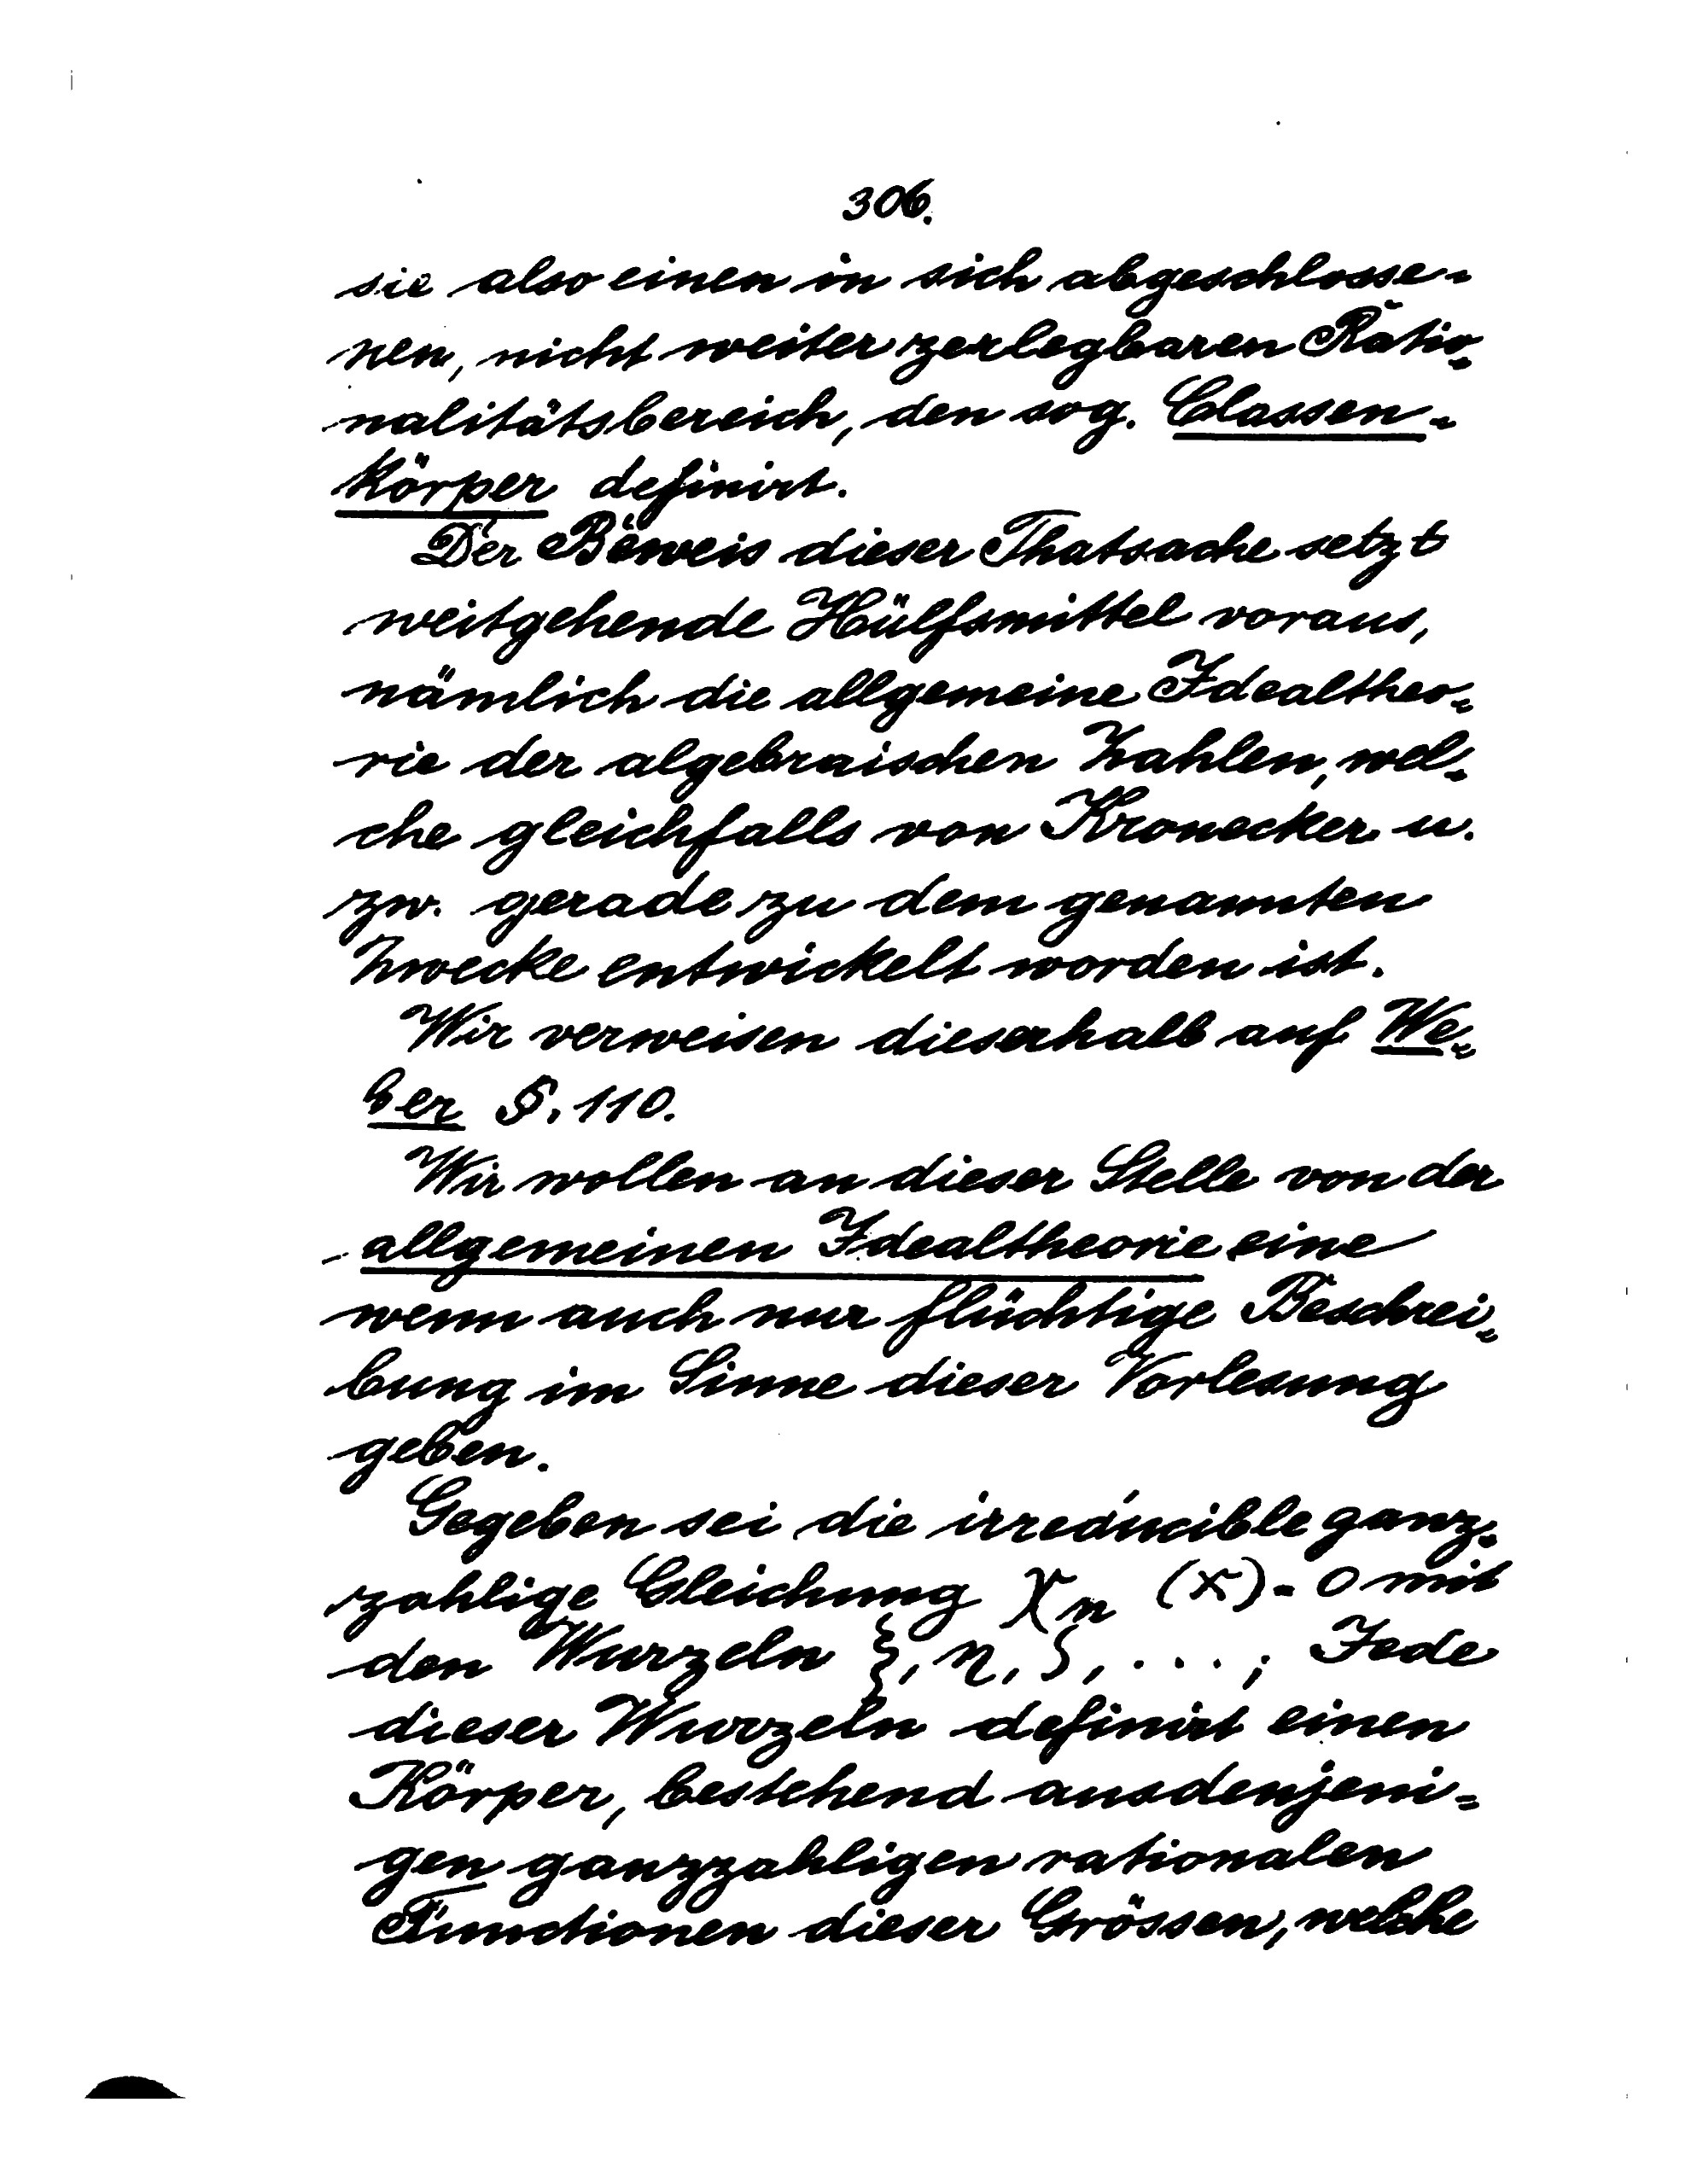 306.
sie also einen in sich abgeschlosse-
nen, nicht weiter zerlegbaren Ratio-
nalitätsbereich, den sog. Classen-
körper definirt.
Der Beweis dieser Thatsache setzt
weitgehende Hülfsmittel voraus,
nämlich die allgemeine Idealtheo-
rie der algebraischen Zahlen, wel-
che gleichfalls von Kronecker u.
zw. gerade zu dem genannten
Zwecke entwickelt worden ist.
Wir verweisen dieserhalb auf We-
ber §. 110.
Wir wollen an dieser Stelle von der
allgemeinen Idealtheorie eine
wenn auch nur flüchtige Beschrei-
bung im Sinne dieser Vorlesung
geben.
Gegeben sei die irreducible ganz-
zahlige Gleichung χn (x) = 0 mit
den Wurzeln ξ, η, ζ, . . . ; Jede
dieser Wurzeln definirt einen
Körper, bestehend aus denjeni-
gen ganzzahligen rationalen
Functionen dieser Grössen, welche